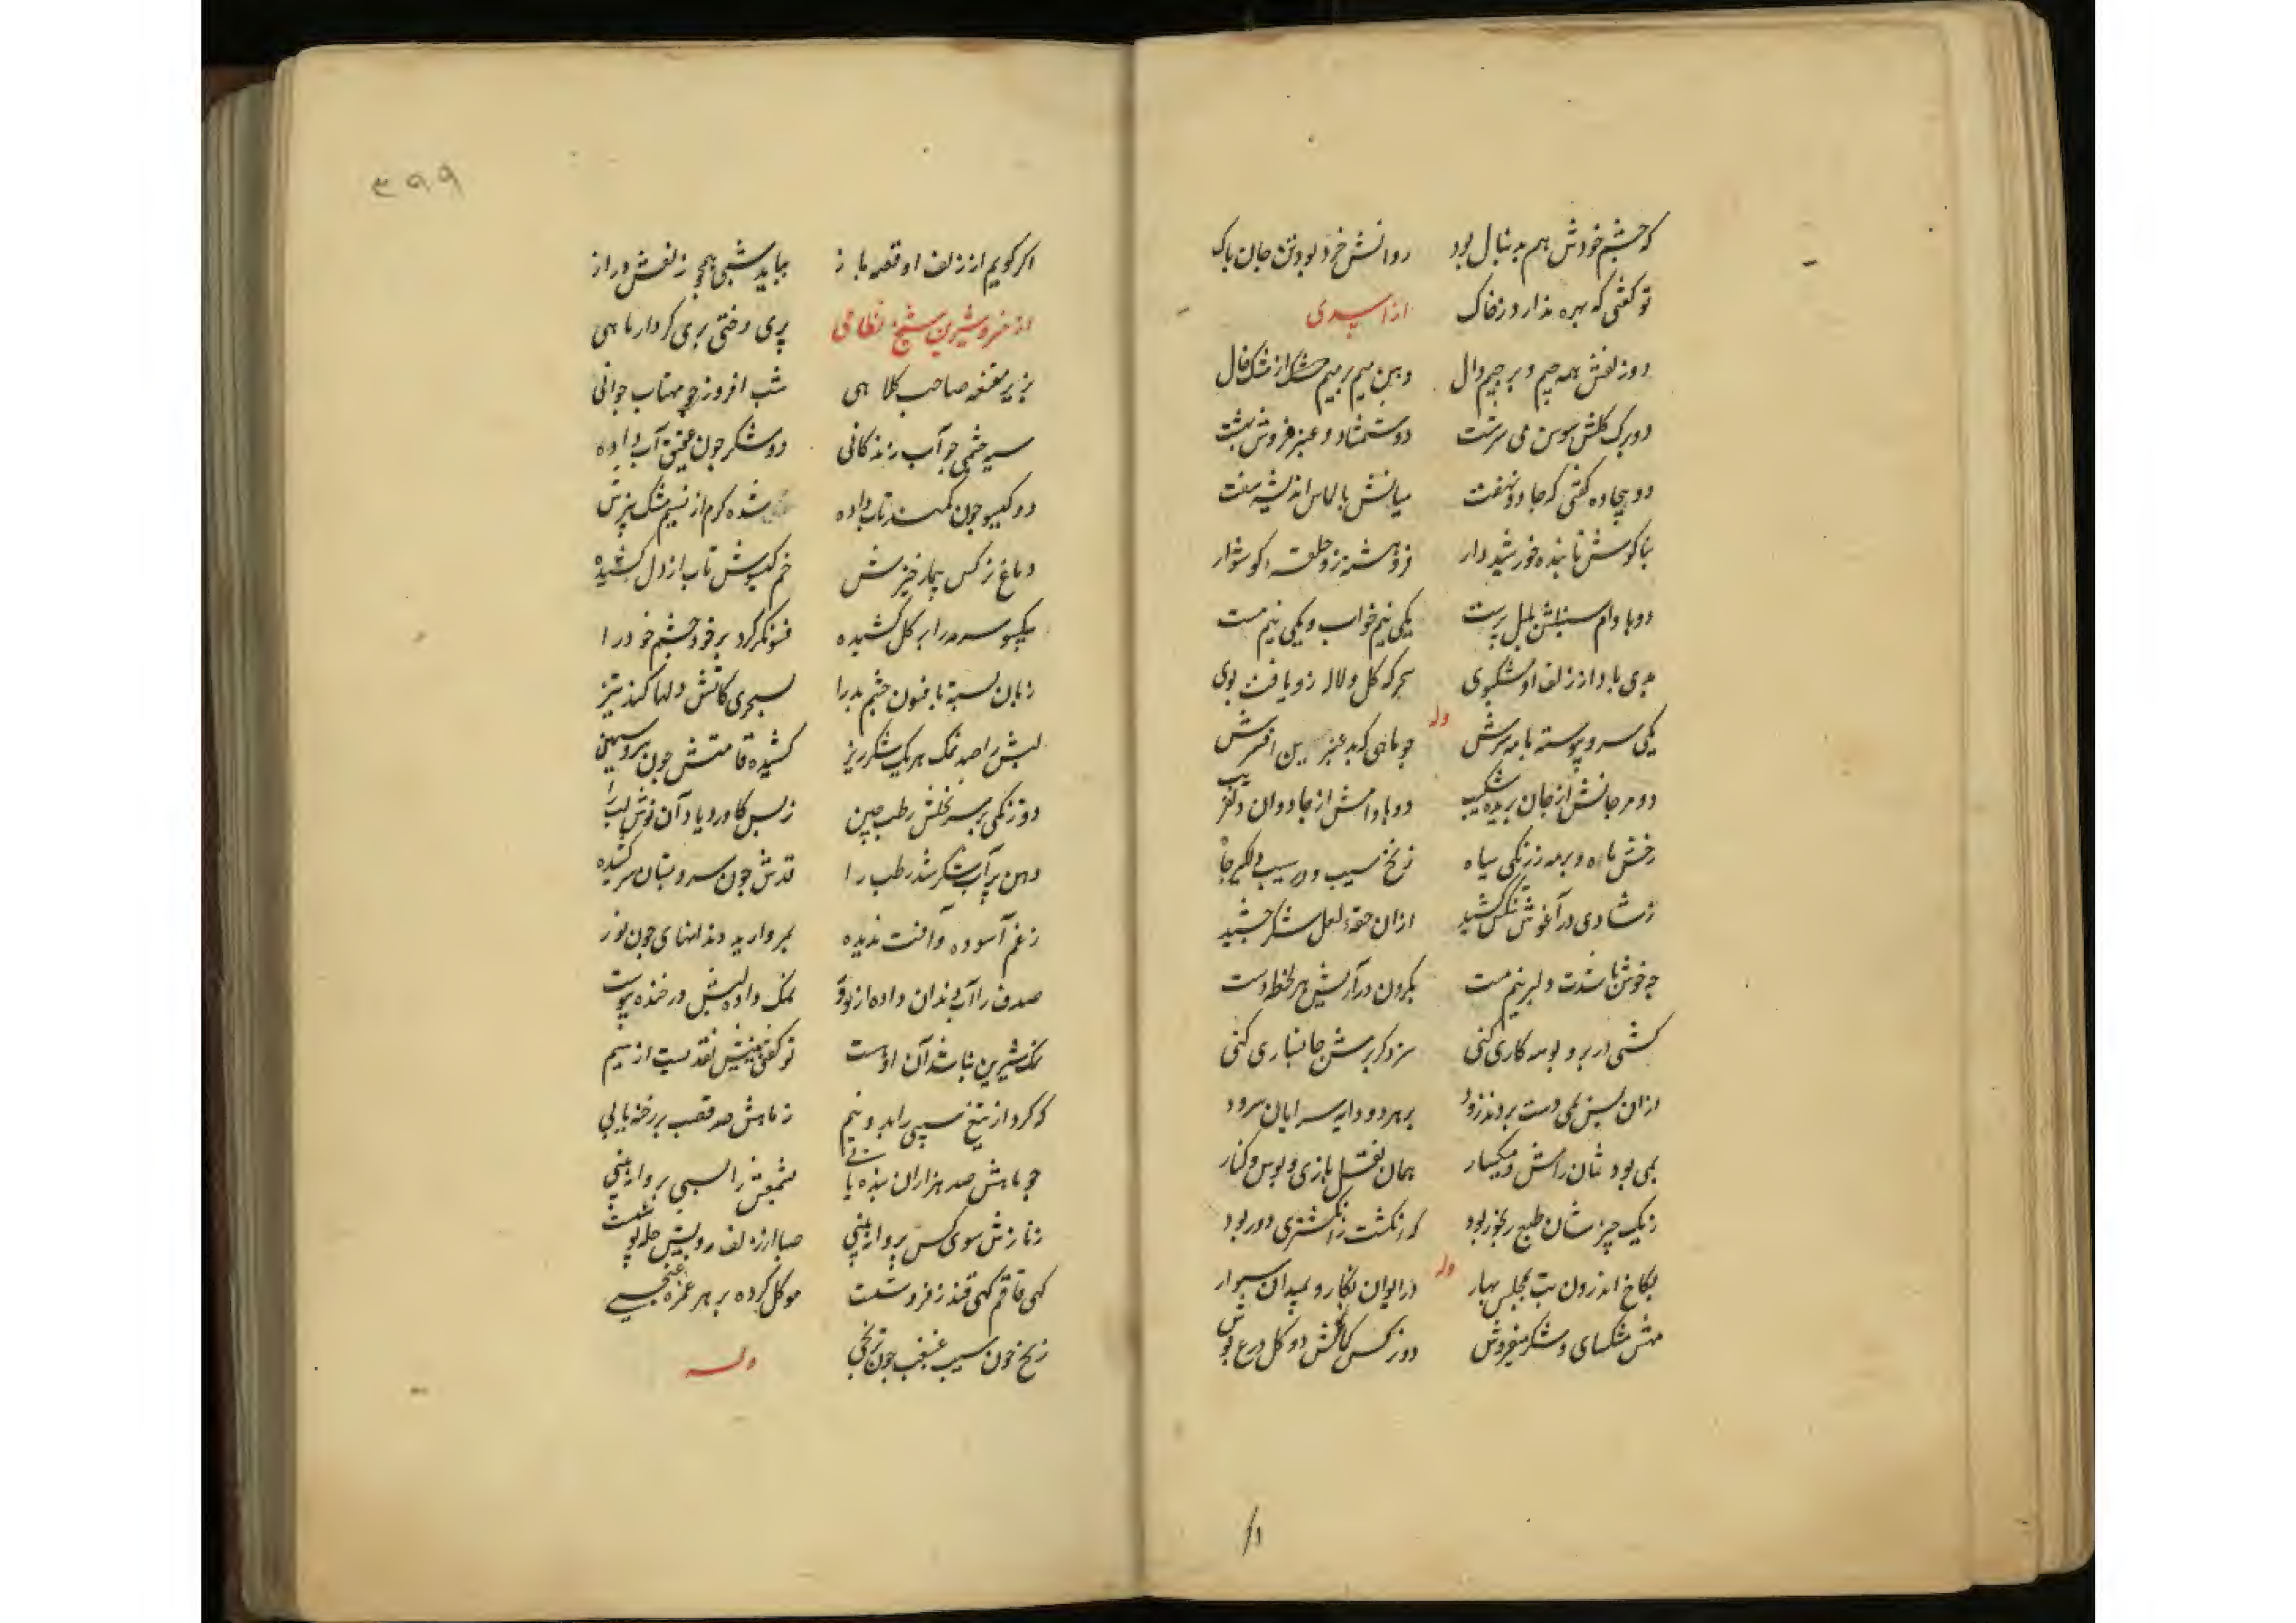 که چشم خودش هم بدنبال بود روانش خرد بود و تن جان پاک
تو گفتی که بهره ندارد ز خاک از اسدی
دو زلفش همه جیم و بر جیم دال دهن میم بر میم از مشک خال
دو برگ گلش سوسن می سرشت دو شمشاد و عنبر فروش بهشت
دو بیجاده گفتی که جادو نهفت میانش بالماس اندیشه سفت
بناگوش تابنده خورشیدوار فروهشته زو حلقه گوشوار
دو بادام سنبلش پرست یکی نیم خواب و یکی نیم مست
بدی باد از زلف او مشکبوی گل و لاله زو یافت بوی
وله
یکی سرو پیوسته با مه سرش چو ماهی که بد عنبرین افسرش
دو مرجانش از جان بریده شکیب دو بادامش از جادوان دلفریب
رخش ماه و بر مه ز زنگی سیاه زنخ سیب و در سیب
ز شادی در آغوش تنگش کشید از آن حقه لعل شکر چشید
چه خوش باشدت دلبر نیم مست بگردن درآریش هر لحظه دست
کشی در بر و بوسه کاری کنی سزد گر برش جانسپاری کنی
ازان پس بمی دست بردند زود بر هر دو دایه سرایان سرود
بمی بود شان رامش و میگسار همان نقل بازی و بوس و کنار
ز یک چیز شان طبع رنجور بود که انگشت ز انگشتری دور بود
وله
بکاخ اندرون بت بمجلس بهار در ایوان نگار و بمیدان سوار
مهش مشکسای و شکر میفروش دو نرگس کمانکش دو گل درع پوش
۳۹۹
اگر گویم از زلف او قصه باز بباید شبی همچو زلفش دراز
از خسرو شیرین شیخ نظامی پری دختی پری بگذار ماهی
بزیر مقنعه صاحب کلاهی شب افروزی چو مهتاب جوانی
سیه چشمی چو آب زندگانی دو شکر چون عقیق آب داده
دو گیسو چون کمند تاب داده شده گرم از نسیم مشک بیزش
دماغ نرگس بیمار خیزش خم گیسوش تاب از دل کشیده
بگیسو سبزه را بر گل کشیده فسونگر کرد بر خود چشم خود را
زبان بسته بافسون چشم بد را بسحری کاتش دلها کند تیز
لبش را صد نمک هر یک شکر ریز کشیده قامتش چون سرو سیمین
دو زنگی بر سر نخلش رطب چین ز بس کاورد یاد آن نوش لب را
دهن پر آب شکر شد رطب را قدش چون سرو بستان سر کشیده
ز غم آسوده و آفت ندیده بمروارید دندانهای چون نور
صدف را آب دندان داده از دور نمک دارد لبش در خنده پیوست
نمک شیرین نباشد آن او هست تو گفتی بینیش تیغیست از سیم
که کرد از تیغ سیبی را بدو نیم ز ماهش صد قصب بر رخنه یابی
چو ماهش صد هزاران بنده یابی بشمعش را بسی پروانه بینی
ز نازش سوی کس پروا نبینی صبا از زلف و رویش حله پوشست
گهی قاقم گهی قندز فروشست موکل کرده بر هر غمزه غنجی
زنخ چون سیب غبغب چون ترنجی وله